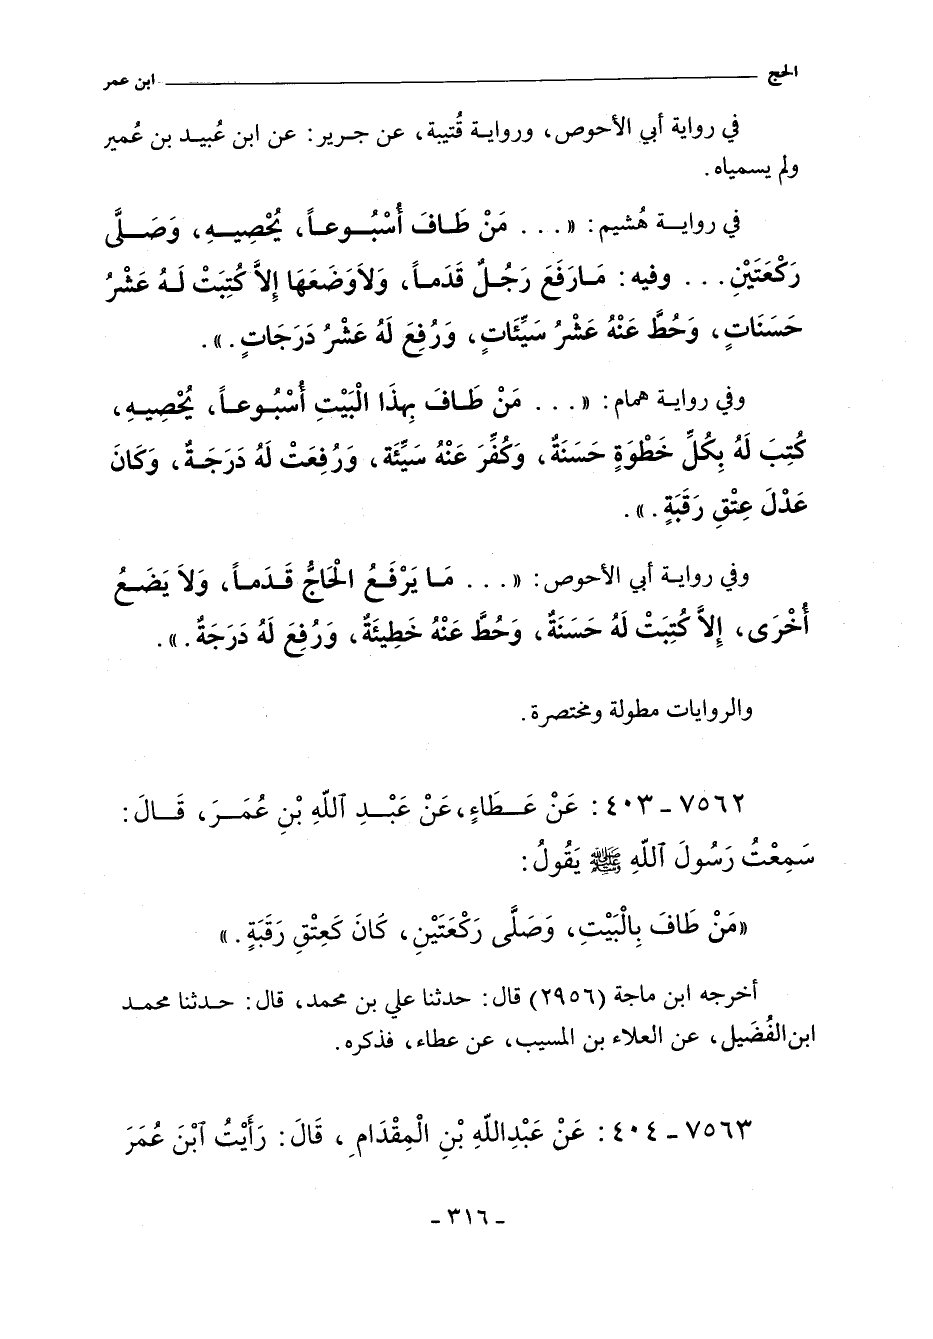 الحج ابن عمر
في رواية أبي الأحوص، ورواية قُتيبة، عن جرير: عن ابن عُبيد بن عُمير
ولم يسمياه.
في رواية هُشيم: «... مَنْ طَافَ أُسْبُوعاً، يُحْصِيهِ، وَصَلَّى
رَكْعَتَيْنِ... وفيه: مَارَفَعَ رَجُلٌ قَدَماً، وَلاَوَضَعَهَا إِلاَّ كُتِبَتْ لَهُ عَشْرُ
حَسَنَاتٍ، وَحُطَّ عَنْهُ عَشْرُ سَيِّئَاتٍ، وَرُفِعَ لَهُ عَشْرُ دَرَجَاتٍ.».
وفي رواية همام: «... مَنْ طَافَ بِهذَا الْبَيْتِ أُسْبُوعاً، يُحْصِيهِ،
كُتِبَ لَهُ بِكُلِّ خَطْوَةٍ حَسَنَةٌ، وَكُفِّرَ عَنْهُ سَيِّئَة، وَرُفِعَتْ لَهُ دَرَجَةٌ، وَكَانَ
عَدْلَ عِتْقِ رَقَبَةٍ.».
وفي رواية أبي الأحوص: «... مَا يَرْفَعُ الْحَاجُّ قَدَماً، وَلاَ يَضَعُ
أُخْرَى، إِلاَّ كُتِبَتْ لَهُ حَسَنَةٌ، وَحُطَّ عَنْهُ خَطِيئَةٌ، وَرُفِعَ لَهُ دَرَجَةٌ.».
والروايات مطولة ومختصرة.
٧٥٦٢ - ٤٠٣: عَنْ عَطَاءٍ، عَنْ عَبْدِ ٱللَّهِ بْنِ عُمَرَ، قَالَ:
سَمِعْتُ رَسُولَ ٱللَّهِ ﷺ يَقُولُ:
«مَنْ طَافَ بِالْبَيْتِ، وَصَلَّى رَكْعَتَيْنِ، كَانَ كَعِتْقِ رَقَبَةٍ.»
أخرجه ابن ماجة (٢٩٥٦) قال: حدثنا علي بن محمد، قال: حدثنا محمد
ابن الفُضَيل، عن العلاء بن المسيب، عن عطاء، فذكره.
٧٥٦٣ - ٤٠٤: عَنْ عَبْدِاللَّهِ بْنِ الْمِقْدَامِ، قَالَ: رَأَيْتُ ٱبْنَ عُمَرَ
- ٣١٦ -